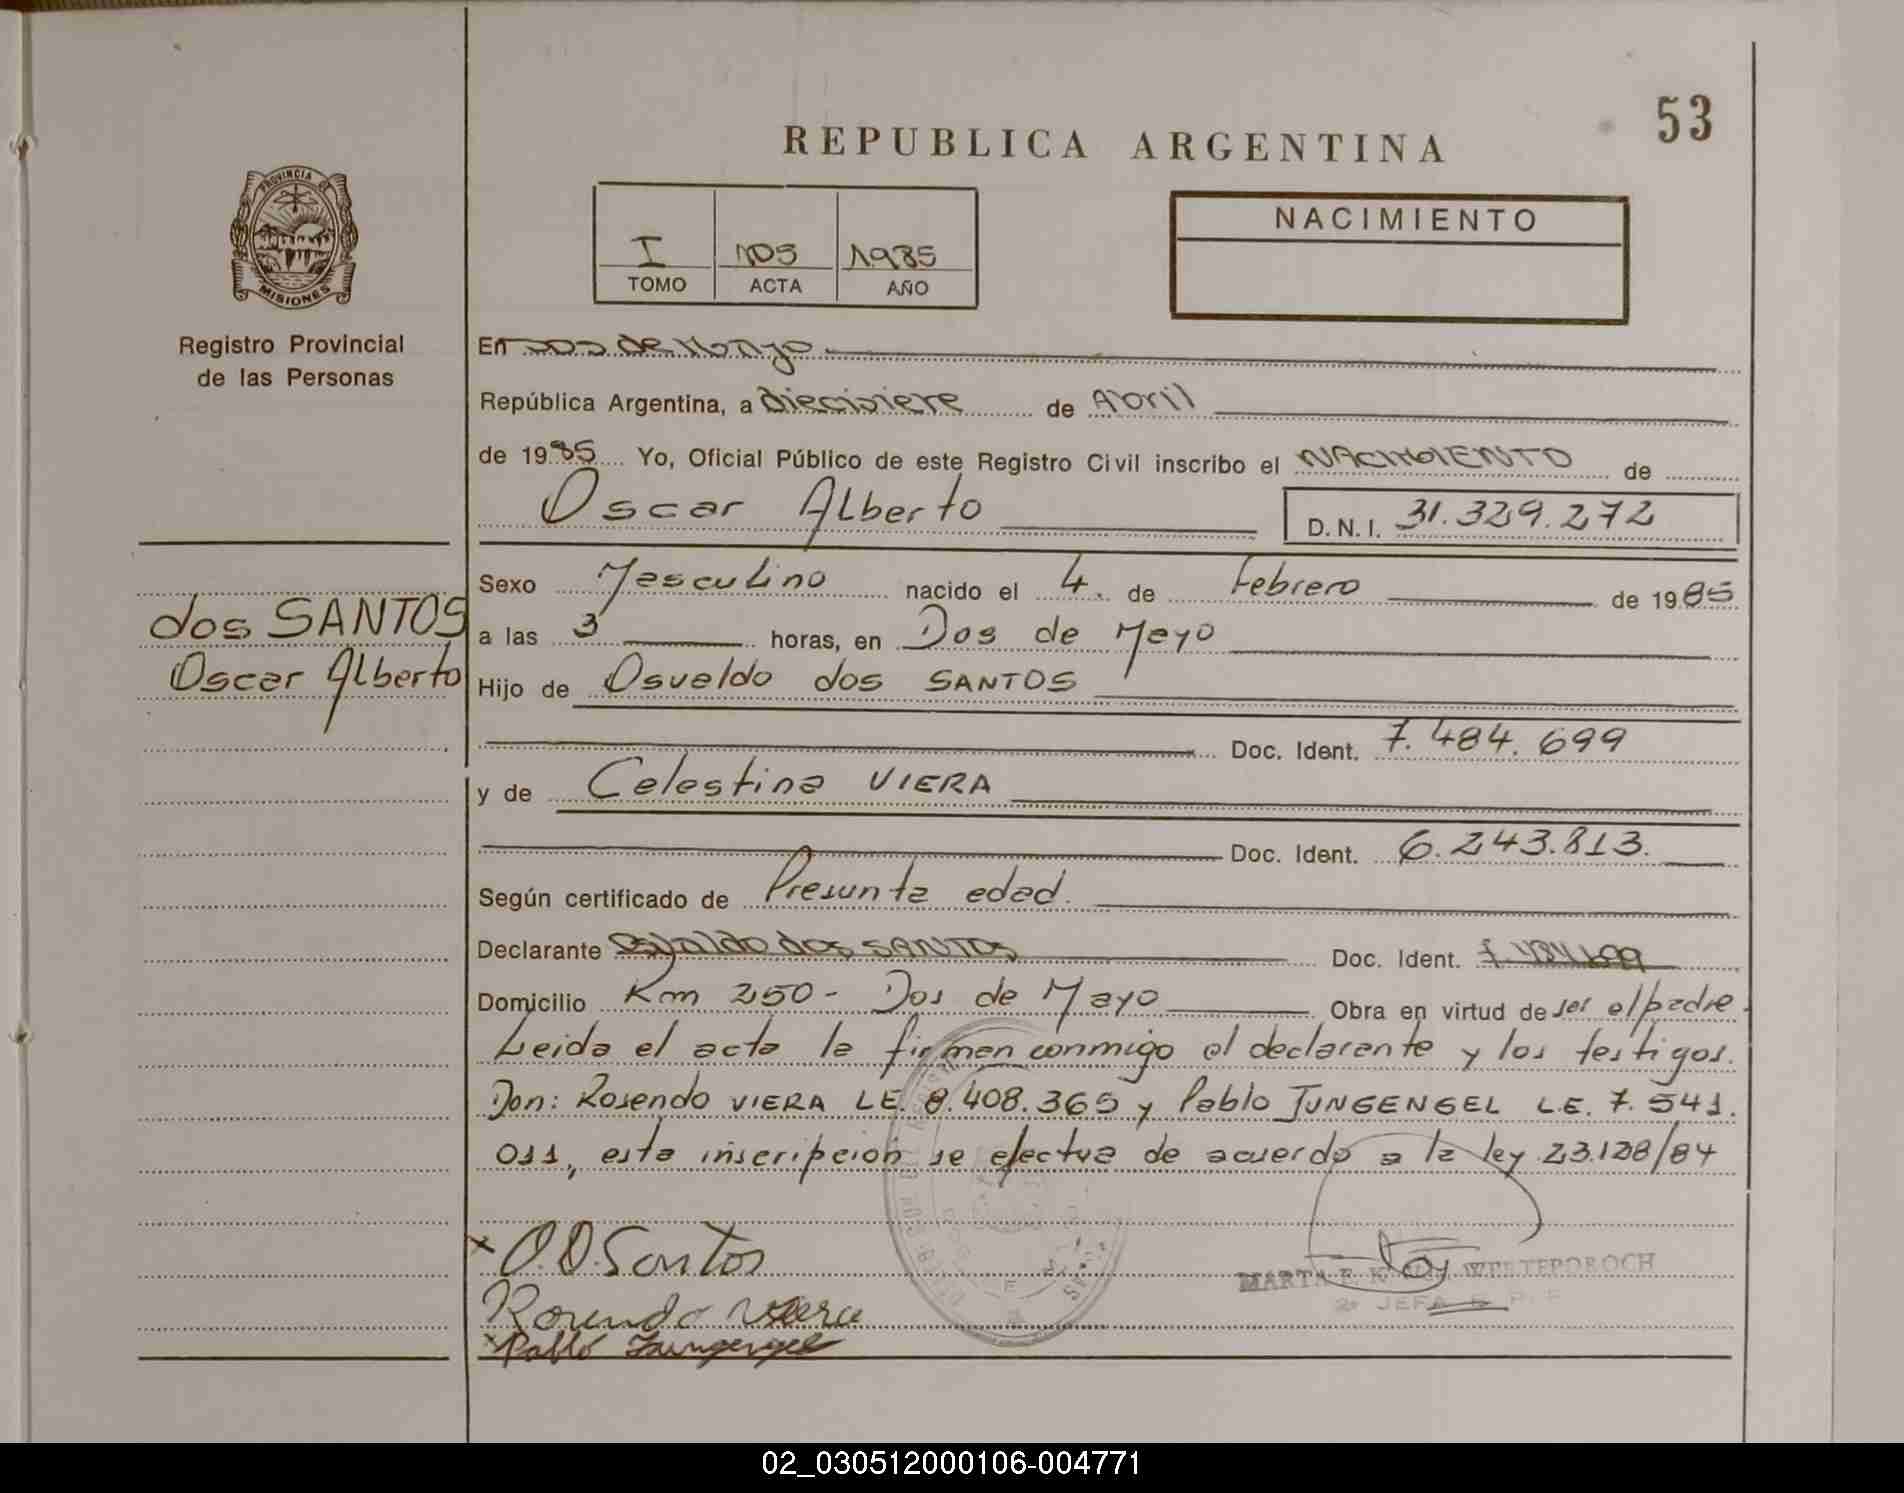 53
REPUBLICA ARGENTINA
PROVINCIA DE
MISIONES
Registro Provincial
de las Personas
I 105 1985
TOMO ACTA AÑO
NACIMIENTO
En Dos de Mayo
República Argentina, a diecisiete de Abril
de 1985 Yo, Oficial Público de este Registro Civil inscribo el NACIMIENTO de
Oscar Alberto
D.N.I. 31.329.272
dos SANTOS
Oscar Alberto
Sexo Masculino nacido el 4 de Febrero de 1985
a las 3 horas, en Dos de Mayo
Hijo de Osvaldo dos SANTOS
Doc. Ident. 7.484.699
y de Celestina VIERA
Doc. Ident. 6.243.813.
Según certificado de Presunta edad.
Declarante Osvaldo dos SANTOS Doc. Ident. 7.484.699
Domicilio Km 250 - Dos de Mayo Obra en virtud de ser el padre.
Leida el acta la firman conmigo el declarante y los testigos.
Don: Rosendo VIERA L.E. 8.408.365 y Pablo JUNGENGEL L.E. 7.541.
011, esta inscripción se efectua de acuerdo a la ley 23.128/84
x O.D.Santos
Rosendo Viera
x Pablo Jungengel
MARTA E. K.
2º JEFA
02_030512000106-004771